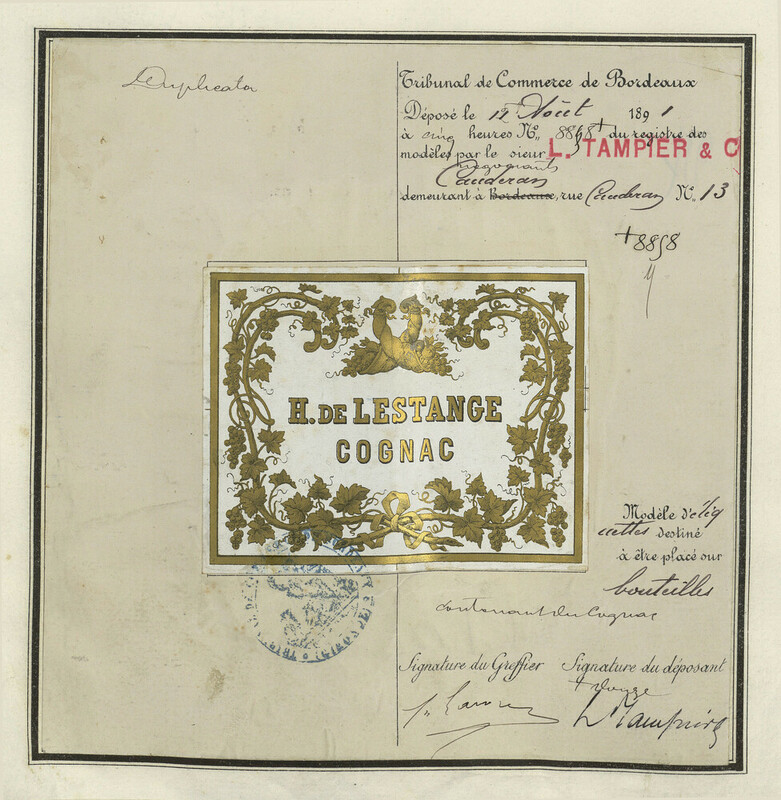 Duplicata
Tribunal de Commerce de Bordeaux
Déposé le 12 Août 1891
à cinq heures N° 8858 + du registre des
modèles par le sieur L. TAMPIER & C
negociants
Cauderan
demeurant à Bordeaux, rue Cauderan N° 13
+8858
H. DE LESTANGE
COGNAC
Modèle d'étiq
uettes destiné
à être placé sur
bouteilles
contenant du Cognac
Signature du Greffier Signature du déposant
L. Tampier